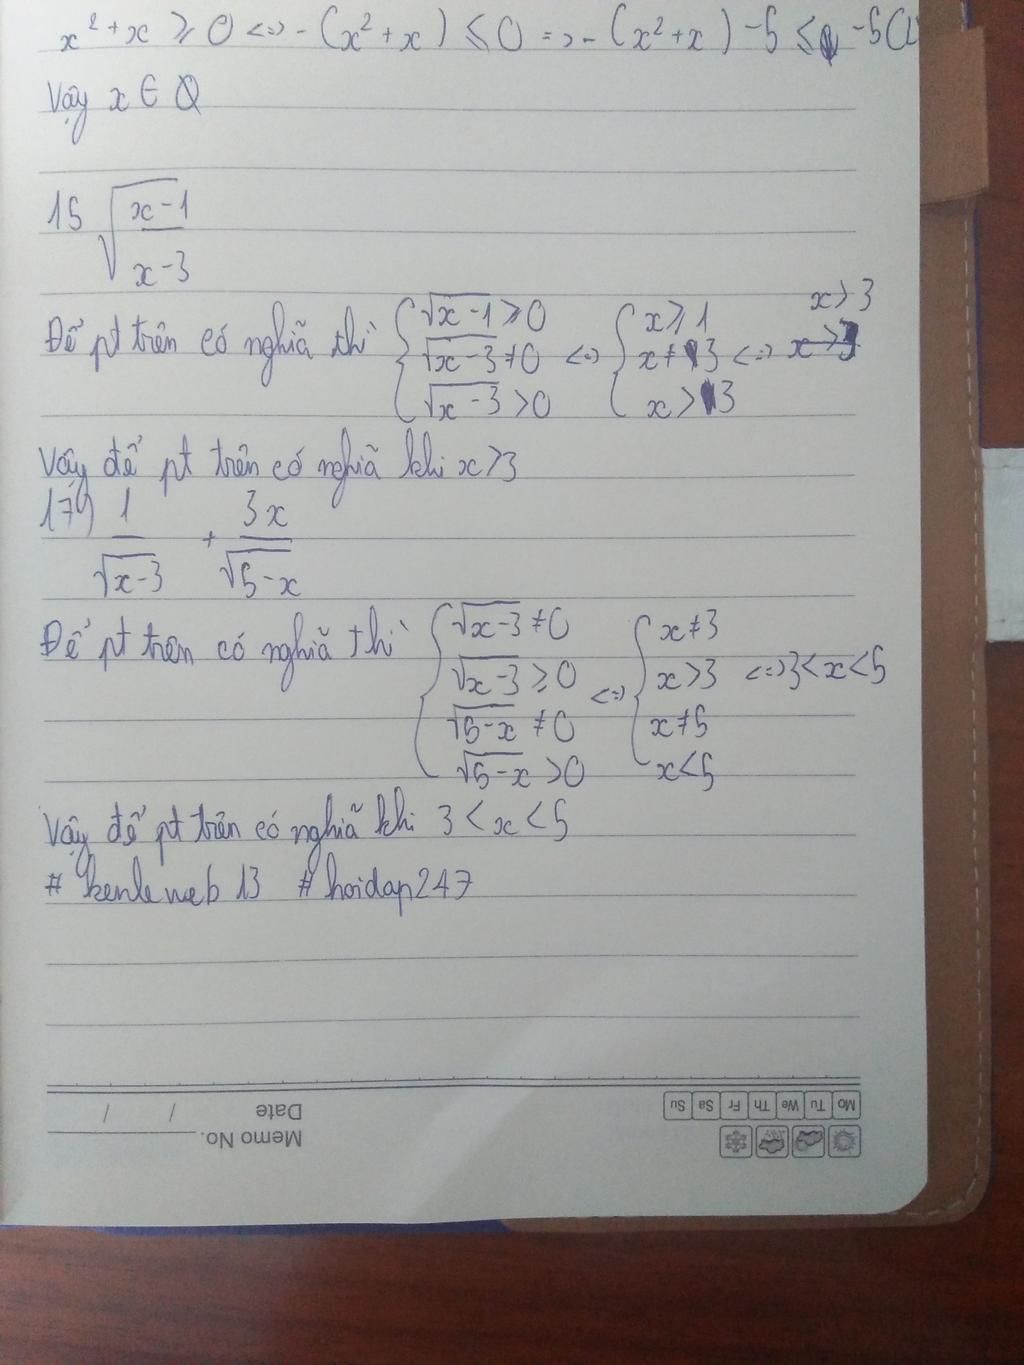 x² + x ⩾ 0 <=> - (x² + x) ⩽ 0 => - (x² + x) - 5 ⩽ - 5 (L
Vậy x ∈ Q
15 √((x-1)/(x-3))
Để pt trên có nghiã thì { √(x-1) ⩾ 0 ; √(x-3) ≠ 0 ; √(x-3) > 0 <=> { x ⩾ 1 ; x ≠ 3 ; x > 3 <=> x > 3
Vậy để pt trên có nghiã khi x > 3
17) 1/√(x-3) + 3x/√(5-x)
Để pt trên có nghiã thì { √(x-3) ≠ 0 ; √(x-3) ⩾ 0 ; √(5-x) ≠ 0 ; √(5-x) > 0 <=> { x ≠ 3 ; x > 3 ; x ≠ 5 ; x < 5 <=> 3 < x < 5
Vậy để pt trên có nghiã khi 3 < x < 5
# kenleweb13 # hoidap247
Memo No.
Date / /
Mo Tu We Th Fr Sa Su